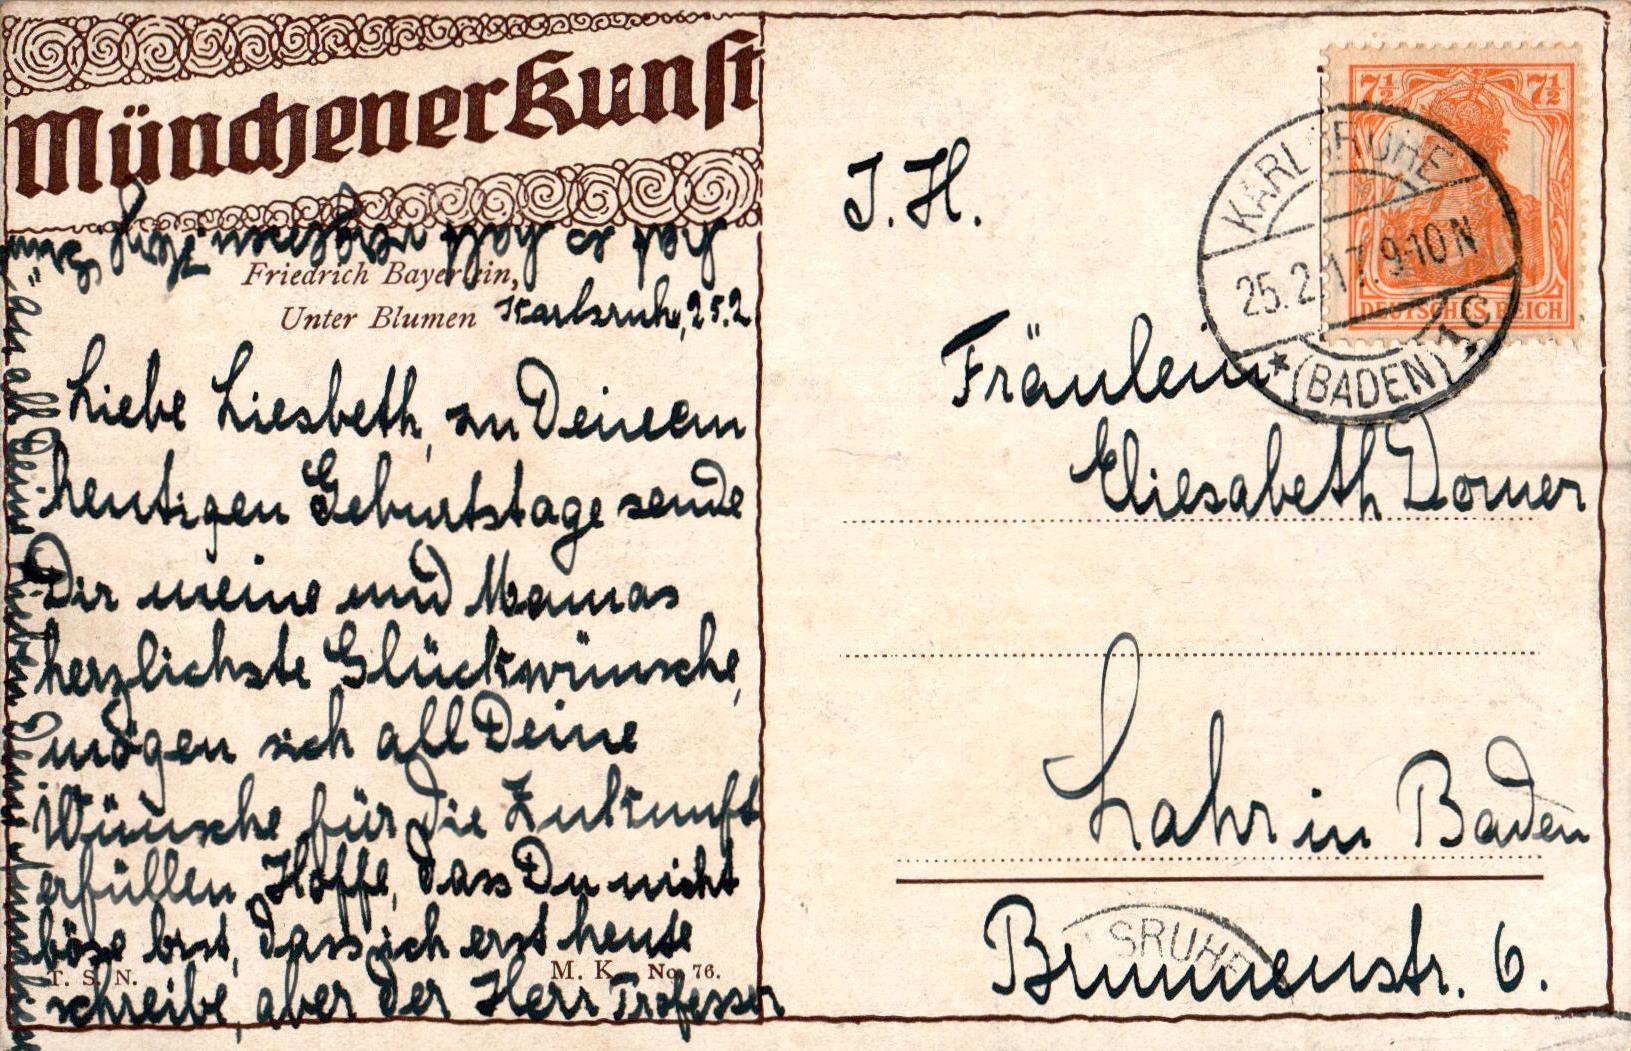 Münchener Kunst
Friedrich Bayerlein,
Unter Blumen
Karlsruhe, 25.2
Liebe Liesbeth, zu Deinem
heutigen Geburtstage sende
Dir meine und Mamas
herzlichste Glückwünsche,
mögen sich all Deine
Wünsche für die Zukunft
erfüllen. Hoffe, dass Du nicht
böse bist, dass ich erst heute
schreibe, aber der Herr Professor
T. S. N.
M. K. No. 76.
an all Deine Lieben Deine
J. H.
Fräulein
Eliesabeth Dorner
Lahr in Baden
Brunnenstr. 6.
7½ 7½
DEUTSCHES REICH
KARLSRUHE
25.2.17. 9-10 N
* (BADEN) 1c
SRUHE